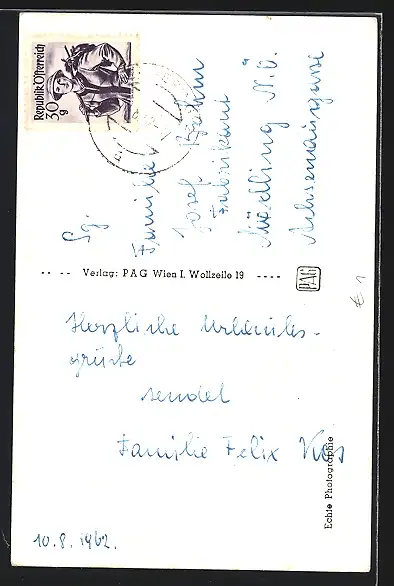 Republik Österreich
30 g
Familie
Josef
Fabrikant
Mödling N.Ö.
Verlag: PAG Wien I. Wollzeile 19
PAG
€ 1
Herzliche Urlaubs-
grüße
sendet
Familie Felix
Echte Photographie
10.8.1962.